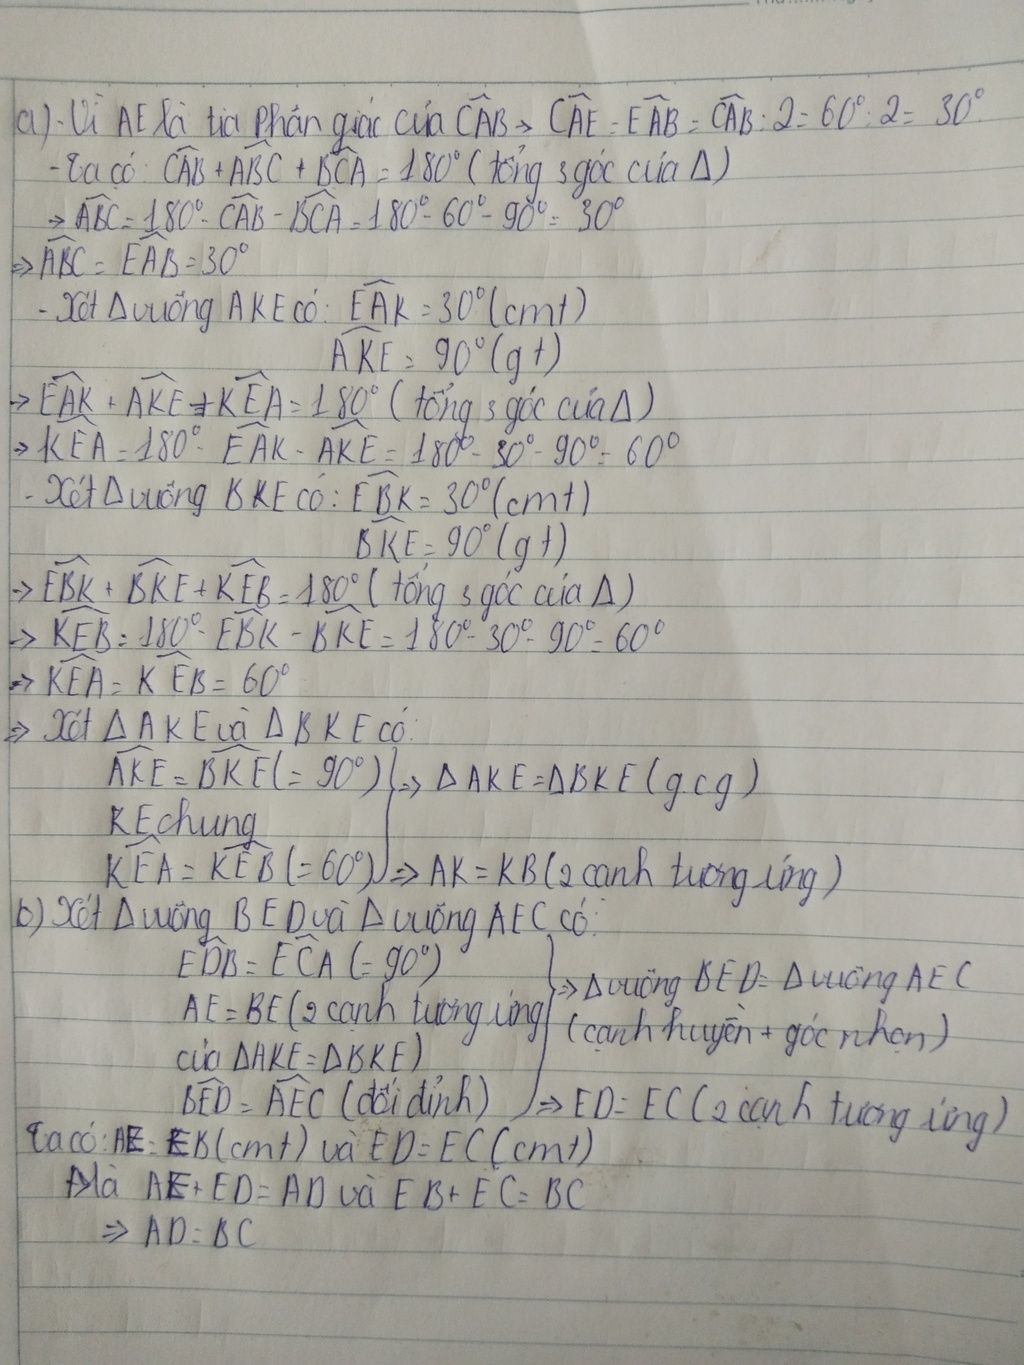 a) - Vì AE là tia phân giác của CÂB → CÂE = EÂB = CÂB : 2 = 60° : 2 = 30°
- Ta có: CÂB + ABC + BCA = 180° (tổng 3 góc của Δ)
→ ABC = 180° - CÂB - BCA = 180° - 60° - 90° = 30°
=> ABC = EÂB = 30°
- Xét Δ vuông AKE có: EÂK = 30° (cmt)
AKE = 90° (gt)
→ EÂK + AKE + KEA = 180° (tổng 3 góc của Δ)
→ KEA = 180° - EÂK - AKE = 180° - 30° - 90° = 60°
- Xét Δ vuông BKE có: EBK = 30° (cmt)
BKE = 90° (gt)
→ EBK + BKE + KEB = 180° (tổng 3 góc của Δ)
→ KEB = 180° - EBK - BKE = 180° - 30° - 90° = 60°
→ KEA = KEB = 60°
=> Xét Δ AKE và Δ BKE có:
AKE = BKE (= 90°) => Δ AKE = Δ BKE (gcg)
KE chung
KEA = KEB (= 60°) => AK = KB (2 cạnh tương ứng)
b) Xét Δ vuông BED và Δ vuông AEC có:
EDB = ECA (= 90°)
=> Δ vuông BED = Δ vuông AEC
AE = BE (2 cạnh tương ứng
(cạnh huyền + góc nhọn)
của ΔAKE = ΔBKE)
BED = AEC (đối đỉnh) => ED = EC (2 cạnh tương ứng)
Ta có: AE = EB (cmt) và ED = EC (cmt)
Mà AE + ED = AD và EB + EC = BC
=> AD = BC